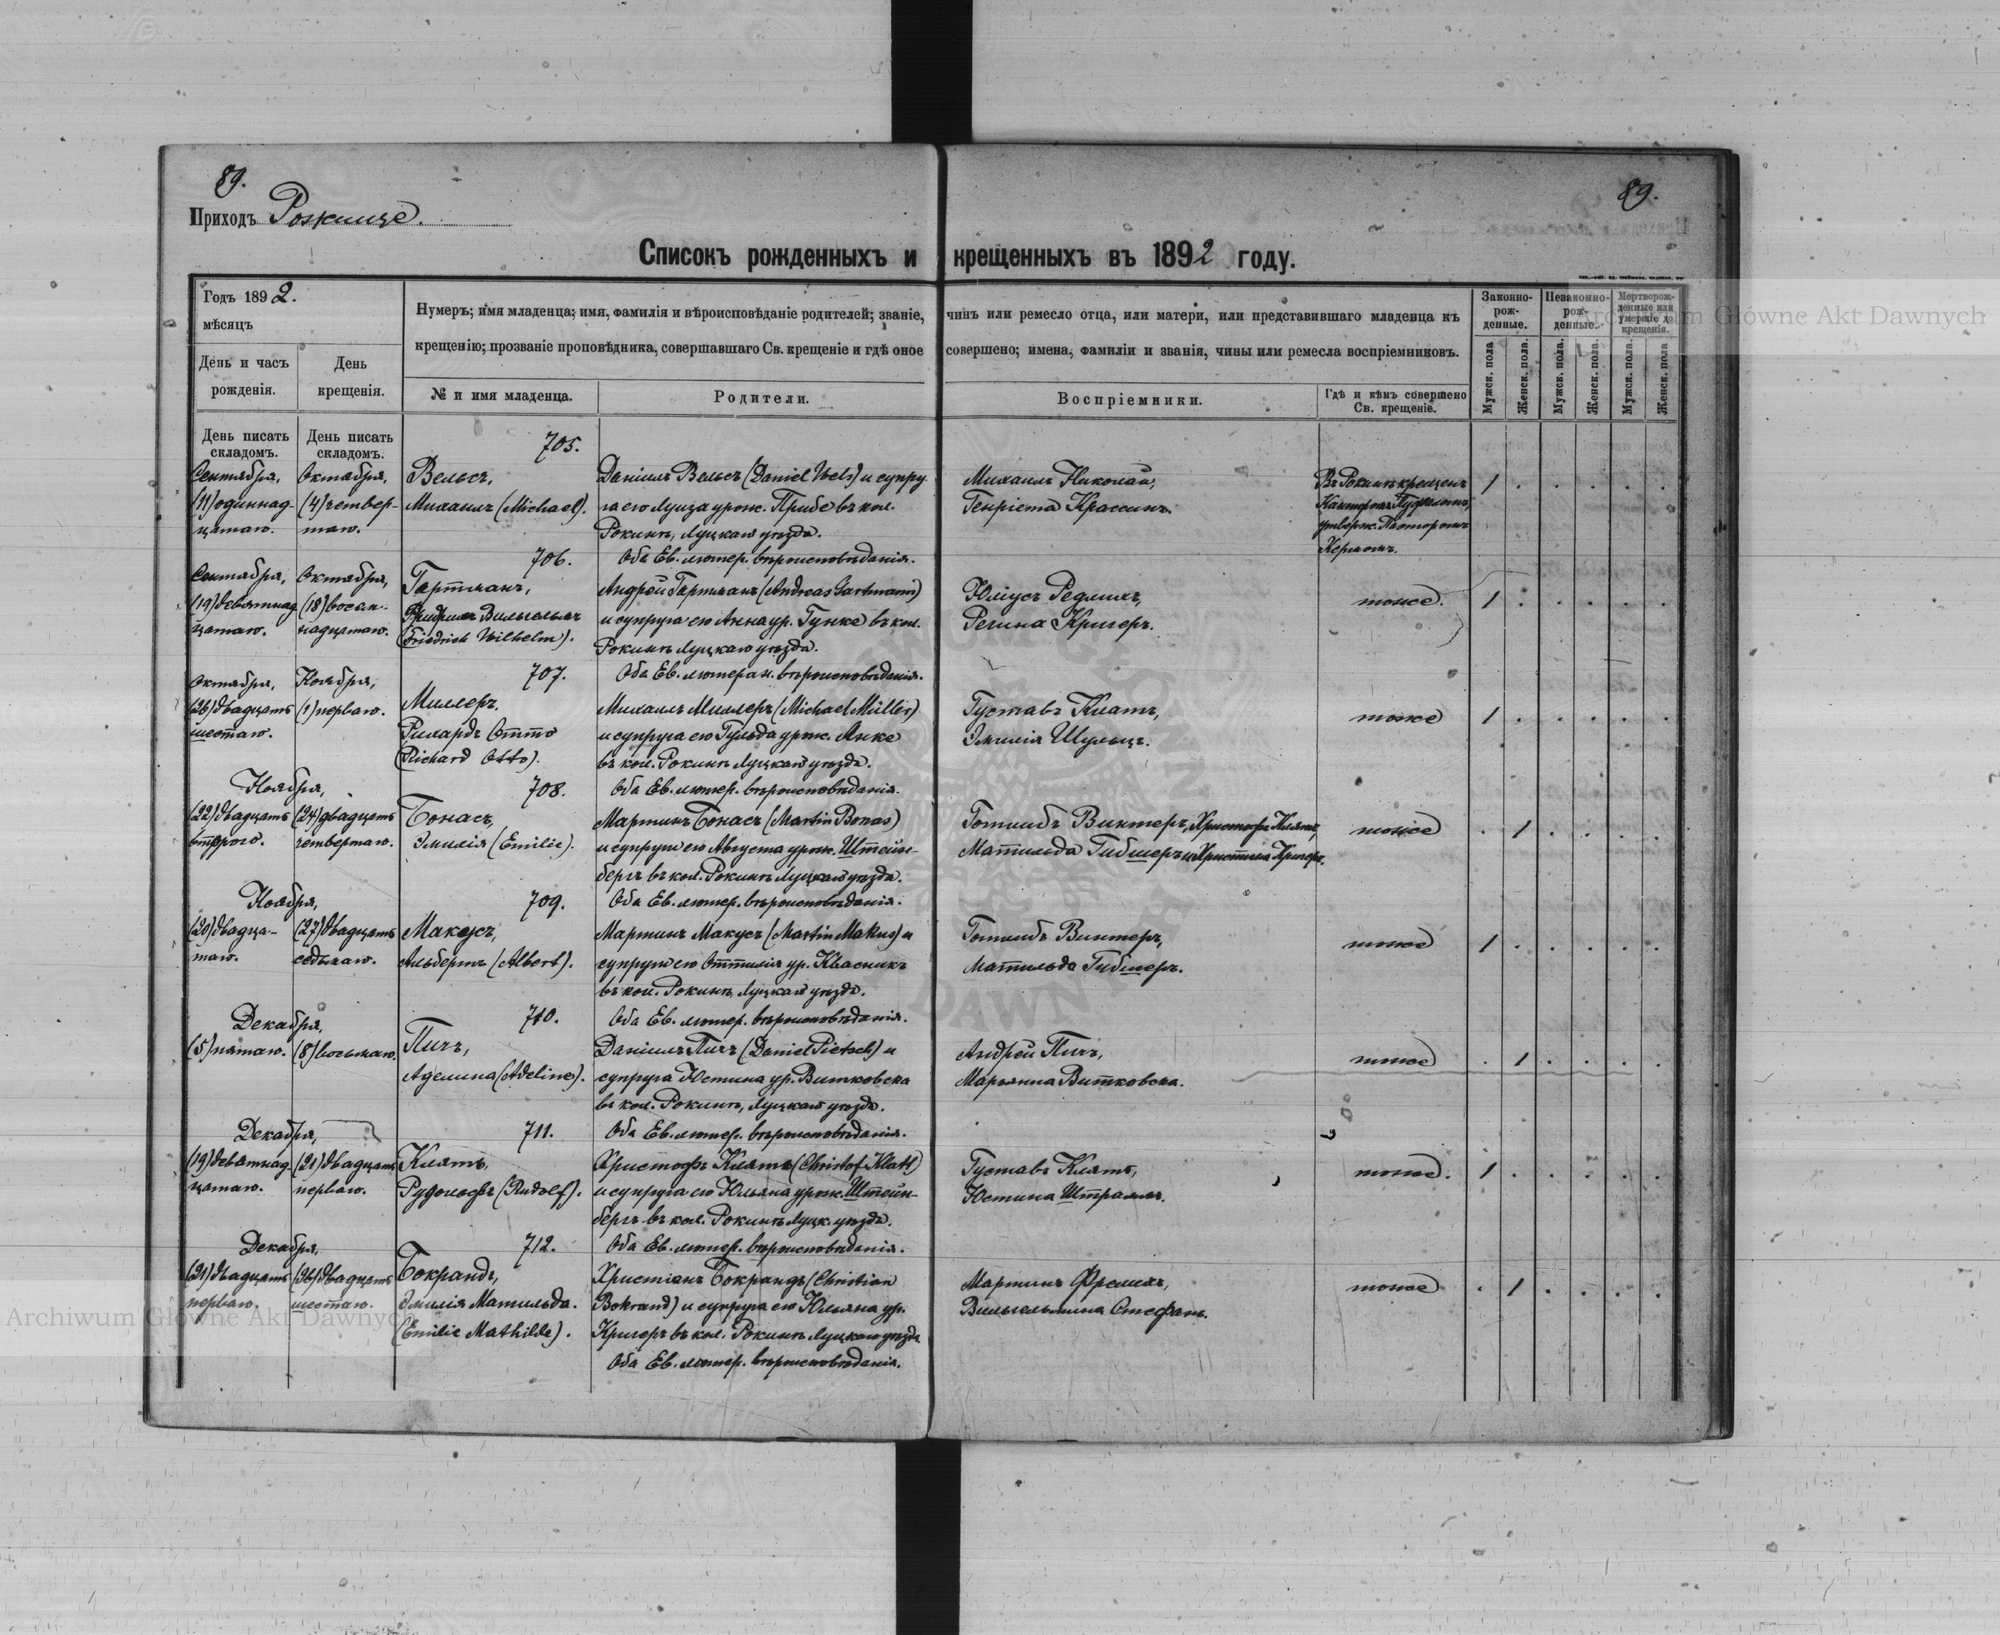 89.
89.
Приходъ Рожище.
Списокъ рожденныхъ и крещенныхъ въ 1892 году.
Годъ 1892.
мѣсяцъ
День и часъ рожденія.
День крещенія.
Нумеръ; имя младенца; имя, фамилія и вѣроисповѣданіе родителей; званіе, чинъ или ремесло отца, или матери, или представившаго младенца къ
крещенію; прозваніе проповѣдника, совершавшаго Св. крещеніе и гдѣ оное совершено; имена, фамиліи и званія, чины или ремесла воспріемниковъ.
№ и имя младенца.
Родители.
Воспріемники.
Гдѣ и кѣмъ совершено Св. крещеніе.
Законно-рож-денные.
Незаконно-рож-денные.
Мертворож-денные или умершіе до крещенія.
Мужск. пола
Женск. пола.
Мужск. пола.
Женск. пола.
Мужск. пола.
Женск. пола
День писать складомъ.
День писать складомъ.
705.
Сентября, (11) одиннад-цатаго.
Октября, (4) четвер-таго.
Вельсъ,
Михаилъ (Michael).
Даніилъ Вельсъ (Daniel Wels) и супру
га его Луиза урож. Прибе въ кол.
Рокинъ, Луцкаго уѣзда.
Оба Ев. лютер. вѣроисповѣданія.
Михаилъ Николай,
Генріета Крассинъ.
Въ Рокинѣ крещенъ
утвержд. Пасторомъ
1
706.
Сентября, (19) девятнад цатаго.
Октября, (18) восем-надцатаго.
Гартманъ,
Фридрихъ Вильгельмъ
(Friedrich Wilhelm).
Андрей Гартманъ (Andreas Gartmann)
и супруга его Анна ур. Гунке въ кол.
Рокинъ Луцкаго уѣзда.
Оба Ев. лютеран. вѣроисповѣданія.
Юліусъ Редлихъ,
Регина Кригеръ.
тоже.
1
707.
Октября, (26) двадцать шестаго.
Ноября, (1) перваго.
Миллеръ,
Рихардъ Отто
(Richard Otto).
Михаилъ Миллеръ (Michael Müller)
и супруга его Гульда урож. Анке
въ кол. Рокинъ Луцкаго уѣзда.
Оба Ев. лютер. вѣроисповѣданія.
Густавъ Клатъ,
Эмилія Шульцъ.
тоже
1
708.
Ноября,
(22) двадцать втораго.
(24) двадцать четвертаго.
Бонасъ,
Эмилія (Emilie).
Мартинъ Бонасъ (Martin Bonas)
и супруга его Августа урож. Штейн-
бергъ въ кол. Рокинъ Луцкаго уѣзда.
Оба Ев. лютер. вѣроисповѣданія.
Готлибъ Винтеръ, Христофъ Клятъ,
Матильда Гибшеръ и Христина Кригеръ.
тоже
1
709.
Ноября,
(20) двадца-таго.
(27) двадцать седьмаго.
Макусъ,
Альбертъ (Albert).
Мартинъ Макусъ (Martin Makus) и
супруга его Оттилія ур. Квасникъ
въ кол. Рокинъ, Луцкаго уѣзда.
Оба Ев. лютер. вѣроисповѣданія.
Готлибъ Винтеръ,
Матильда Гибшеръ.
тоже
1
710.
Декабря,
(5) пятаго.
(8) восьмаго.
Пичъ,
Аделина (Adeline).
Даніилъ Пичъ (Daniel Pietsch) и
супруга Юстина ур. Витковска
въ кол. Рокинъ, Луцкаго уѣзда.
Оба Ев. лютер. вѣроисповѣданія.
Андрей Пичъ,
Марьянна Витковска.
тоже
1
711.
Декабря,
(19) девятнад цатаго.
(21) двадцать перваго.
Клятъ,
Рудольфъ (Rudolf).
Христофъ Клятъ (Christof Klatt)
и супруга его Юльяна урож. Штейн-
бергъ въ кол. Рокинъ Луцк. уѣзда.
Оба Ев. лютер. вѣроисповѣданія.
Густавъ Клятъ,
Юстина Штрамъ.
тоже.
1
712.
Декабря,
(21) двадцать перваго.
(26) двадцать шестаго.
Бокрандъ,
Эмилія Матильда.
(Emilie Mathilde).
Христіанъ Бокрандъ (Christian
Bokrand) и супруга его Юльяна ур.
Кригеръ въ кол. Рокинъ Луцкаго уѣзда
Оба Ев. лютер. вѣроисповѣданія.
Мартинъ Фрелихъ,
Вильгельмина Стефанъ.
тоже
1
Archiwum Główne Akt Dawnych
Archiwum Główne Akt Dawnych